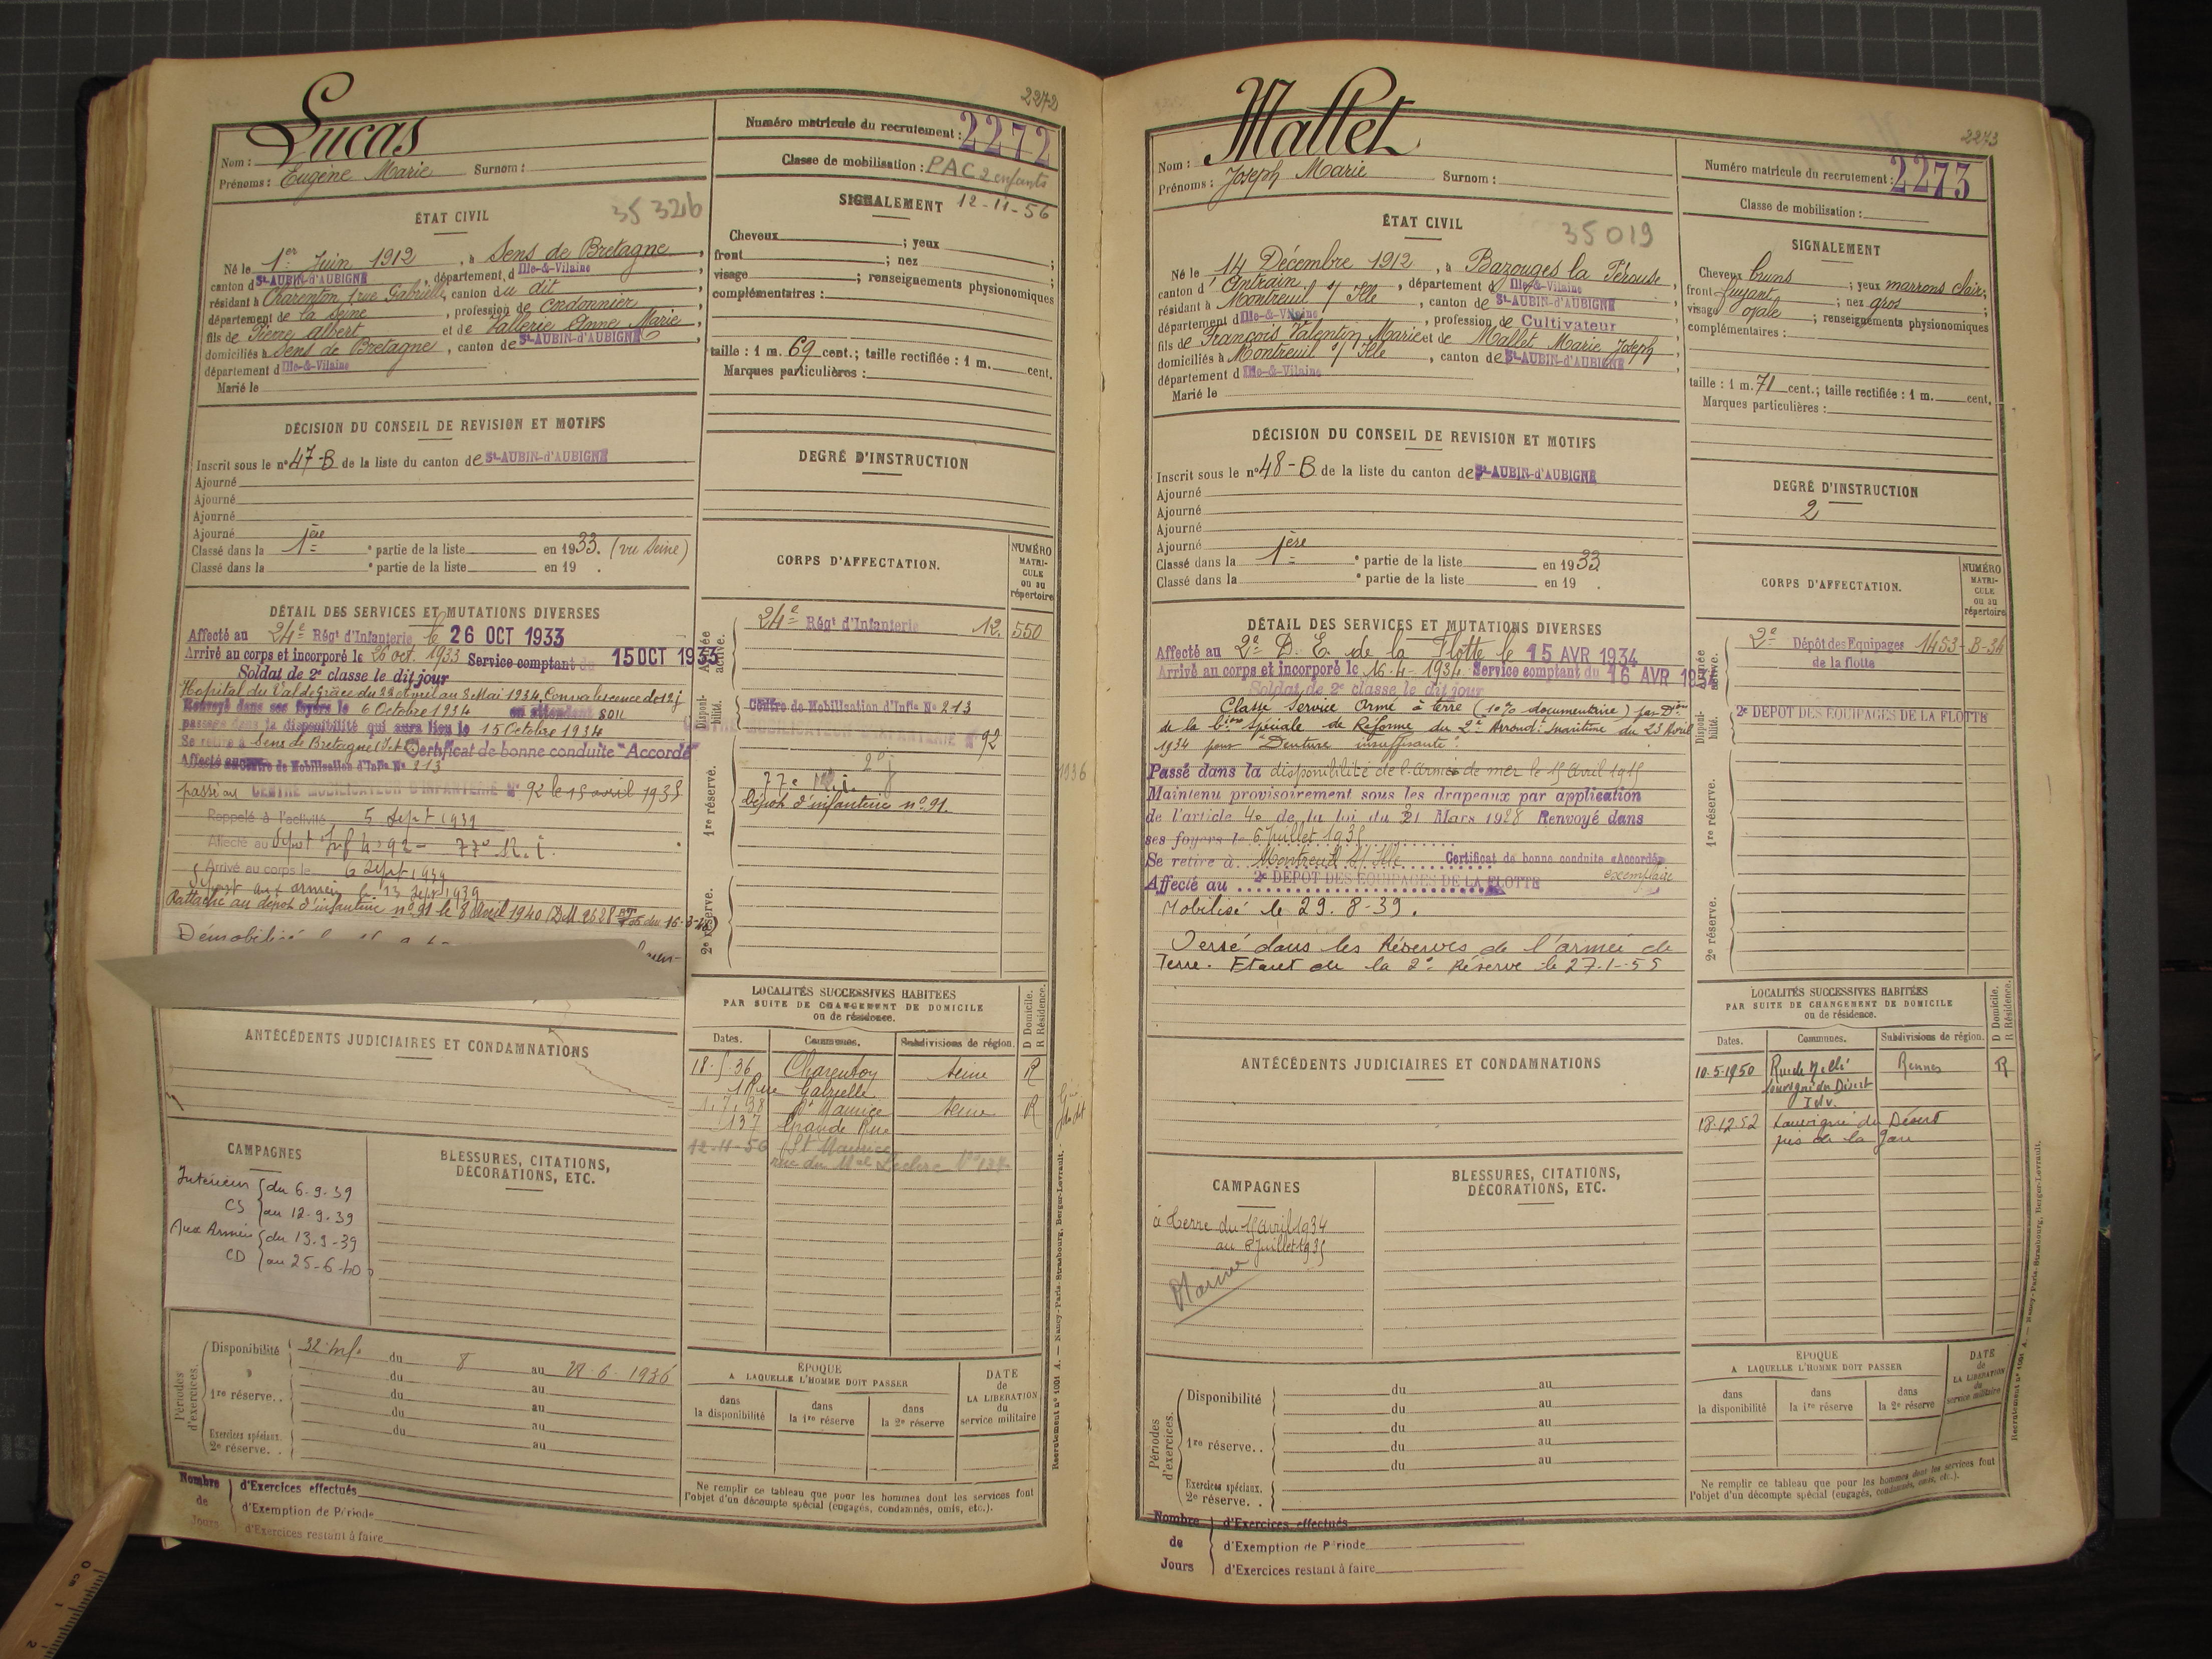 2272
Lucas
Nom :
Prénoms : Eugène Marie Surnom :
Numéro matricule du recrutement : 2272
Classe de mobilisation : PAC 2 enfants
12-11-56
ÉTAT CIVIL
35 326
Né le 1er Juin 1912, à Sens de Bretagne,
canton d St-AUBIN-d'AUBIGNÉ, département d Ille-&-Vilaine,
résidant à Charenton, 1 rue Gabrielle, canton du dit
département de la Seine, profession de Cordonnier
fils de Pierre Albert et de Vallerie Anne Marie,
domiciliés à Sens de Bretagne, canton de St-AUBIN-d'AUBIGNÉ
département d Ille-&-Vilaine
Marié le
SIGNALEMENT
Cheveux ; yeux
front ; nez ;
visage ; renseignements physionomiques
complémentaires :
taille : 1 m. 69 cent.; taille rectifiée : 1 m. cent.
Marques particulières :
DÉCISION DU CONSEIL DE REVISION ET MOTIFS
Inscrit sous le n° 47-B de la liste du canton de St-AUBIN-d'AUBIGNÉ
Ajourné
Ajourné
Ajourné
Ajourné
Classé dans la 1ère partie de la liste en 1933. (vu Seine)
Classé dans la partie de la liste en 19 .
DEGRÉ D'INSTRUCTION
DÉTAIL DES SERVICES ET MUTATIONS DIVERSES
Affecté au 24e Régt d'Infanterie le 26 OCT 1933
Arrivé au corps et incorporé le 26 oct. 1933 Service comptant du 15 OCT 1933
Soldat de 2e classe le dit jour
Hopital du Val de Grâce du 23 Avril au 8 Mai 1934. Convalescence de 12 j
Renvoyé dans ses foyers le 6 Octobre 1934 en attendant son
passage dans la disponibilité qui aura lieu le 15 Octobre 1934
Se retire à Sens de Bretagne Certificat de bonne conduite "Accordé"
Affecté au Centre de Mobilisation d'Infie No 213
passé au CENTRE MOBILISATEUR D'INFANTERIE N° 92 le 15 avril 1935
Rappelé à l'activité 5 Sept 1939
Affecté au Dépot Inf N° 92 - 77e R.i.
Arrivé au corps le 6 Sept 1939
aux armées le 13 Sept 1939
Rattaché au dépot d'infanterie n° 91 le 8 Avril 1940
Démobilisé
CORPS D'AFFECTATION.
NUMÉRO MATRICULE ou au répertoire
Armée active.
24e Régt d'Infanterie 12. 550
Disponibilité.
Centre de Mobilisation d'Infie No 213
CENTRE MOBILISATEUR D'INFANTERIE N° 92
1re réserve.
27e R.i.
Dépot d'infanterie n° 91.
1936
2e réserve.
ANTÉCÉDENTS JUDICIAIRES ET CONDAMNATIONS
LOCALITÉS SUCCESSIVES HABITÉES
PAR SUITE DE CHANGEMENT DE DOMICILE
ou de résidence.
D Domicile. R Résidence.
Dates. Communes. Subdivisions de région.
18-5-36 Charenton Seine R
1 Rue Gabrielle
1.7.38 St Maurice Seine R
137 Grande Rue
12-11-56 St Maurice
rue du Mal Leclerc N° 137
CAMPAGNES
Intérieur du 6-9-39
CS au 12-9-39
Aux Armées du 13-9-39
CD au 25-6-40
BLESSURES, CITATIONS,
DÉCORATIONS, ETC.
Périodes d'exercices.
Disponibilité 32e Inf. du 8 au 28 6 1936
du au
1re réserve.. du au
du au
Exercices spéciaux. du au
2e réserve. . au
ÉPOQUE
A LAQUELLE L'HOMME DOIT PASSER
dans la disponibilité
dans la 1re réserve
dans la 2e réserve
DATE de LA LIBÉRATION du service militaire
Ne remplir ce tableau que pour les hommes dont les services font
l'objet d'un décompte spécial (engagés, condamnés, omis, etc.).
Nombre de Jours
d'Exercices effectués
d'Exemption de Période
d'Exercices restant à faire
Recrutement n° 1001 A. — Nancy-Paris-Strasbourg, Berger-Levrault.
2273
Mallet
Nom :
Prénoms : Joseph Marie Surnom :
Numéro matricule du recrutement : 2273
Classe de mobilisation :
ÉTAT CIVIL
35019
Né le 14 Décembre 1912, à Bazouges la Pérouse,
canton d' Antrain, département d Ille-&-Vilaine,
résidant à Montreuil s/ Ille, canton de St-AUBIN-d'AUBIGNÉ
département d Ille-&-Vilaine, profession de Cultivateur
fils de François Valentin Marie et de Mallet Marie Joseph
domiciliés à Montreuil s/ Ille, canton de St-AUBIN-d'AUBIGNÉ
département d Ille-&-Vilaine
Marié le
SIGNALEMENT
Cheveux bruns ; yeux marrons clair;
front fuyant ; nez gros ;
visage ovale ; renseignements physionomiques
complémentaires :
taille : 1 m. 71 cent.; taille rectifiée : 1 m. cent.
Marques particulières :
DÉCISION DU CONSEIL DE REVISION ET MOTIFS
Inscrit sous le n° 48-B de la liste du canton de St-AUBIN-d'AUBIGNÉ
Ajourné
Ajourné
Ajourné
Ajourné
Classé dans la 1ère partie de la liste en 1933
Classé dans la partie de la liste en 19 .
DEGRÉ D'INSTRUCTION
2
DÉTAIL DES SERVICES ET MUTATIONS DIVERSES
Affecté au 2e D. E. de la Flotte le 15 AVR 1934
Arrivé au corps et incorporé le 16-4-1934 Service comptant du 16 AVR 1934
Soldat de 2e classe le dit jour
Classé Service Armé à terre (10% documentaire) par Don
de la Cion Spéciale de Réforme du 2e Arrondt Maritime du 23 Avril
1934 pour "Denture insuffisante".
Passé dans la disponibilité de l'armée de mer le 15 avril 1935
Maintenu provisoirement sous les drapeaux par application
de l'article 40 de la loi du 31 Mars 1928 Renvoyé dans
ses foyers le 6 juillet 1935
Se retire à Montreuil s/ Ille Certificat de bonne conduite «Accordé»
exemplaire
Affecté au 2e DEPOT DES EQUIPAGES DE LA FLOTTE
Mobilisé le 29.8-39.
Versé dans les Réserves de l'armée de
Terre. Etant de la 2e Réserve le 27-1-55
CORPS D'AFFECTATION.
NUMÉRO MATRICULE ou au répertoire
Armée active.
2e Dépôt des Equipages de la flotte 1453-B-34
Disponibilité.
2e DEPOT DES EQUIPAGES DE LA FLOTTE
1re réserve.
2e réserve.
ANTÉCÉDENTS JUDICIAIRES ET CONDAMNATIONS
LOCALITÉS SUCCESSIVES HABITÉES
PAR SUITE DE CHANGEMENT DE DOMICILE
ou de résidence.
D Domicile. R Résidence.
Dates. Communes. Subdivisions de région.
10-5-1950 Rue de Rennes R
Louvigné du Désert
I &V.
18-12-52 Louvigné du Désert
près de la Gare
CAMPAGNES
à terre du 16 avril 1934
au 6 juillet 1935
Marine
BLESSURES, CITATIONS,
DÉCORATIONS, ETC.
Périodes d'exercices.
Disponibilité du au
du au
1re réserve.. du au
du au
du au
Exercices spéciaux.
2e réserve. .
ÉPOQUE
A LAQUELLE L'HOMME DOIT PASSER
dans la disponibilité
dans la 1re réserve
dans la 2e réserve
DATE de LA LIBÉRATION du service militaire
Ne remplir ce tableau que pour les hommes dont les services font
l'objet d'un décompte spécial (engagés, condamnés, omis, etc.).
Nombre de Jours
d'Exercices effectués
d'Exemption de Période
d'Exercices restant à faire
Recrutement n° 1001 A. — Nancy-Paris-Strasbourg, Berger-Levrault.
0 cm 1 2